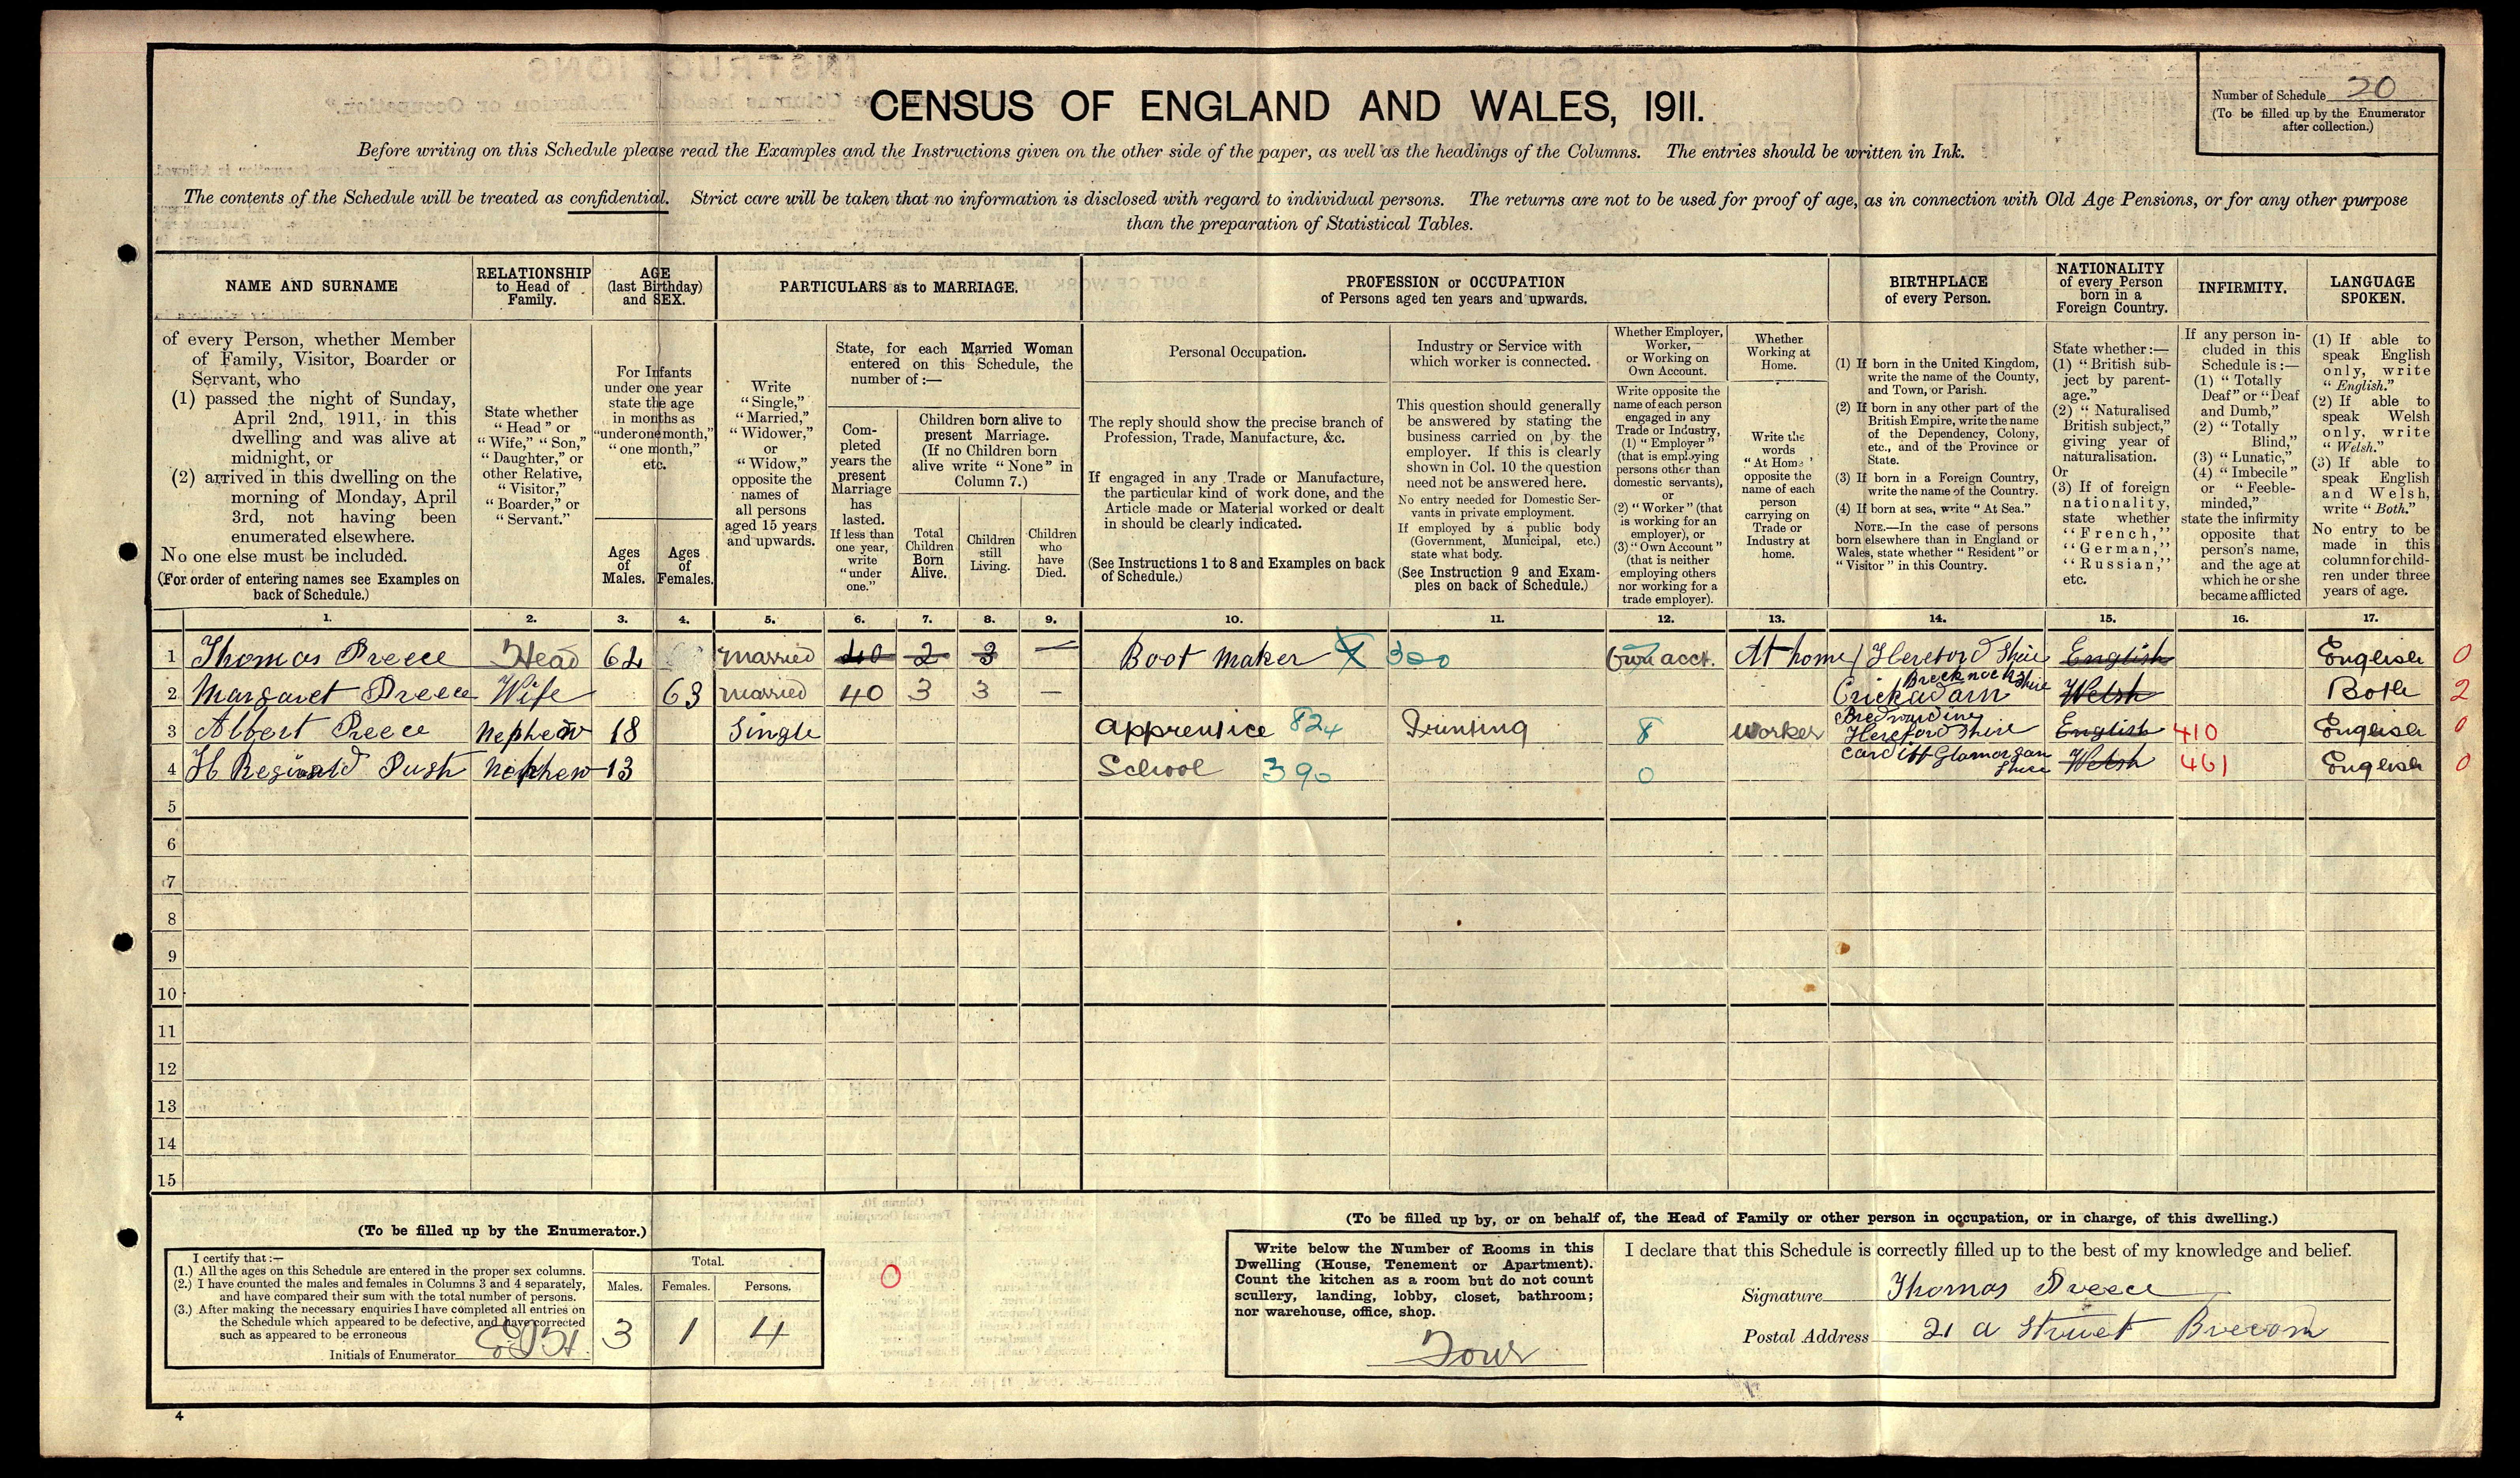 CENSUS OF ENGLAND AND WALES, 1911.
Number of Schedule 20
(To be filled up by the Enumerator
after collection.)
Before writing on this Schedule please read the Examples and the Instructions given on the other side of the paper, as well as the headings of the Columns. The entries should be written in Ink.
The contents of the Schedule will be treated as confidential. Strict care will be taken that no information is disclosed with regard to individual persons. The returns are not to be used for proof of age, as in connection with Old Age Pensions, or for any other purpose
than the preparation of Statistical Tables.
NAME AND SURNAME
of every Person, whether Member
of Family, Visitor, Boarder or
Servant, who
(1) passed the night of Sunday,
April 2nd, 1911, in this
dwelling and was alive at
midnight, or
(2) arrived in this dwelling on the
morning of Monday, April
3rd, not having been
enumerated elsewhere.
No one else must be included.
(For order of entering names see Examples on
back of Schedule.)
RELATIONSHIP
to Head of
Family.
State whether
"Head" or
"Wife," "Son,"
"Daughter," or
other Relative,
"Visitor,"
"Boarder," or
"Servant."
AGE
(last Birthday)
and SEX.
For Infants
under one year
state the age
in months as
"under one month,"
"one month,"
etc.
Ages
of
Males.
Ages
of
Females.
PARTICULARS as to MARRIAGE.
Write
"Single,"
"Married,"
"Widower,"
or
"Widow,"
opposite the
names of
all persons
aged 15 years
and upwards.
State, for each Married Woman
entered on this Schedule, the
number of :—
Com-
pleted
years the
present
Marriage
has
lasted.
If less than
one year,
write
"under
one."
Children born alive to
present Marriage.
(If no Children born
alive write "None" in
Column 7.)
Total
Children
Born
Alive.
Children
still
Living.
Children
who
have
Died.
PROFESSION or OCCUPATION
of Persons aged ten years and upwards.
Personal Occupation.
The reply should show the precise branch of
Profession, Trade, Manufacture, &c.
If engaged in any Trade or Manufacture,
the particular kind of work done, and the
Article made or Material worked or dealt
in should be clearly indicated.
(See Instructions 1 to 8 and Examples on back
of Schedule.)
Industry or Service with
which worker is connected.
This question should generally
be answered by stating the
business carried on by the
employer. If this is clearly
shown in Col. 10 the question
need not be answered here.
No entry needed for Domestic Ser-
vants in private employment.
If employed by a public body
(Government, Municipal, etc.)
state what body.
(See Instruction 9 and Exam-
ples on back of Schedule.)
Whether Employer,
Worker,
or Working on
Own Account.
Write opposite the
name of each person
engaged in any
Trade or Industry,
(1) "Employer"
(that is employing
persons other than
domestic servants),
or
(2) "Worker" (that
is working for an
employer), or
(3) "Own Account"
(that is neither
employing others
nor working for a
trade employer).
Whether
Working at
Home.
Write the
words
"At Home"
opposite the
name of each
person
carrying on
Trade or
Industry at
home.
BIRTHPLACE
of every Person.
(1) If born in the United Kingdom,
write the name of the County,
and Town, or Parish.
(2) If born in any other part of the
British Empire, write the name
of the Dependency, Colony,
etc., and of the Province or
State.
(3) If born in a Foreign Country,
write the name of the Country.
(4) If born at sea, write "At Sea."
NOTE.—In the case of persons
born elsewhere than in England or
Wales, state whether "Resident" or
"Visitor" in this Country.
NATIONALITY
of every Person
born in a
Foreign Country.
State whether :—
(1) "British sub-
ject by parent-
age."
(2) "Naturalised
British subject,"
giving year of
naturalisation.
Or
(3) If of foreign
nationality,
state whether
"French,"
"German,"
"Russian,"
etc.
INFIRMITY.
If any person in-
cluded in this
Schedule is :—
(1) "Totally
Deaf" or "Deaf
and Dumb,"
(2) "Totally
Blind,"
(3) "Lunatic,"
(4) "Imbecile"
or "Feeble-
minded,"
state the infirmity
opposite that
person's name,
and the age at
which he or she
became afflicted
LANGUAGE
SPOKEN.
(1) If able to
speak English
only, write
"English."
(2) If able to
speak Welsh
only, write
"Welsh."
(3) If able to
speak English
and Welsh,
write "Both."
No entry to be
made in this
column for child-
ren under three
years of age.
1. 2. 3. 4. 5. 6. 7. 8. 9. 10. 11. 12. 13. 14. 15. 16. 17.
1 Thomas Preece Head 62 Married 40 2 3 — Boot Maker 300 Own acct. At home Hereford Shire English English 0
2 Margaret Preece Wife 63 Married 40 3 3 — Crickadarn Brecknockshire Welsh Both 2
3 Albert Preece Nephew 18 Single Apprentice 824 Printing 8 Worker Bredwardine Hereford Shire English 410 English 0
4 H Reginald Push Nephew 13 School 390 0 Cardiff Glamorgan Shire Welsh 461 English 0
5
6
7
8
9
10
11
12
13
14
15
(To be filled up by the Enumerator.)
I certify that :—
(1.) All the ages on this Schedule are entered in the proper sex columns.
(2.) I have counted the males and females in Columns 3 and 4 separately,
and have compared their sum with the total number of persons.
(3.) After making the necessary enquiries I have completed all entries on
the Schedule which appeared to be defective, and have corrected
such as appeared to be erroneous
Initials of Enumerator
Total.
Males. Females. Persons.
3 1 4
0
(To be filled up by, or on behalf of, the Head of Family or other person in occupation, or in charge, of this dwelling.)
Write below the Number of Rooms in this
Dwelling (House, Tenement or Apartment).
Count the kitchen as a room but do not count
scullery, landing, lobby, closet, bathroom;
nor warehouse, office, shop.
Four
I declare that this Schedule is correctly filled up to the best of my knowledge and belief.
Signature Thomas Preece
Postal Address 21 a Struet Brecon
4